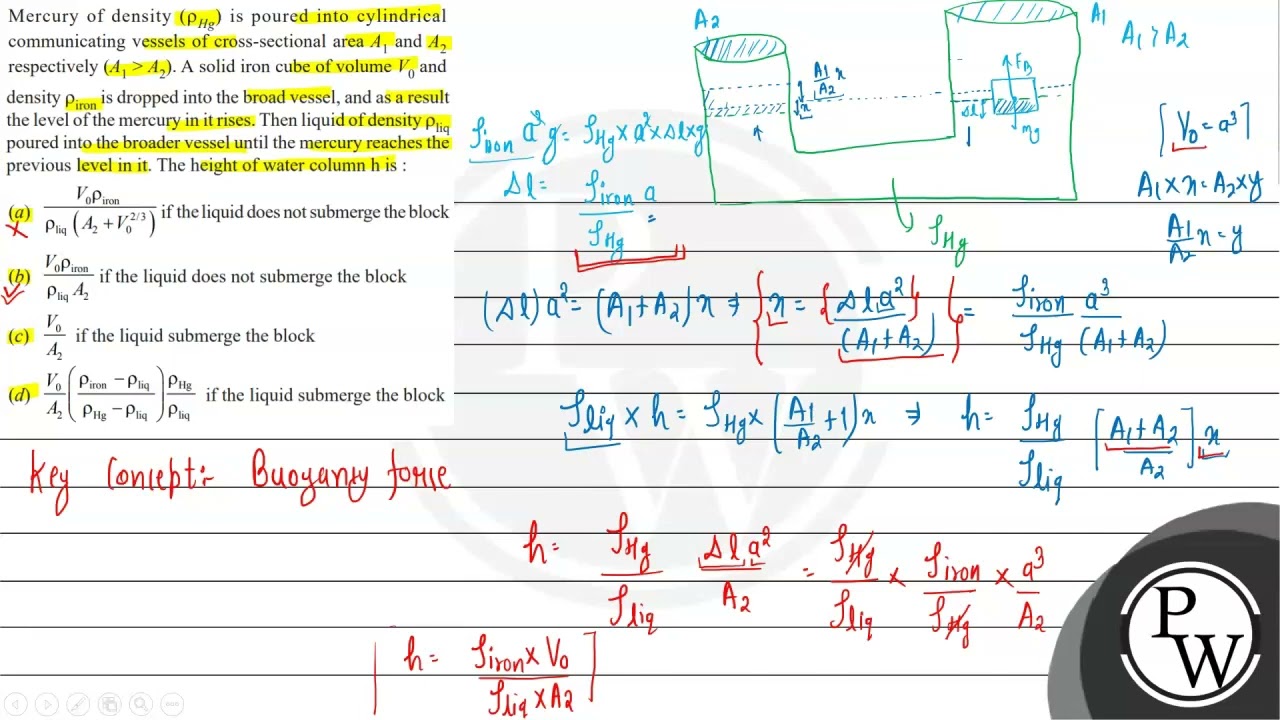 Mercury of density (ρ_Hg) is poured into cylindrical
communicating vessels of cross-sectional area A₁ and A₂
respectively (A₁ > A₂). A solid iron cube of volume V₀ and
density ρ_iron is dropped into the broad vessel, and as a result
the level of the mercury in it rises. Then liquid of density ρ_liq
poured into the broader vessel until the mercury reaches the
previous level in it. The height of water column h is :
(a) V₀ρ_iron / ρ_liq (A₂ + V₀^2/3) if the liquid does not submerge the block
(b) V₀ρ_iron / ρ_liq A₂ if the liquid does not submerge the block
(c) V₀ / A₂ if the liquid submerge the block
(d) V₀ / A₂ (ρ_iron − ρ_liq / ρ_Hg − ρ_liq) ρ_Hg / ρ_liq if the liquid submerge the block
Key Concept:- Buoyancy force
A2
A1
A1 > A2
A1/A2 x
x
FB
Δl
mg
ρHg
[V0 = a³]
A1 × x = A2 × y
A1/A2 x = y
ρiron a³ g = ρHg × a² × Δl × g
Δl = ρiron/ρHg a
(Δl) a² = (A1 + A2) x ⇒ {x = {Δl a²}/(A1 + A2)} = ρiron/ρHg a³/(A1 + A2)
ρliq × h = ρHg × (A1/A2 + 1) x ⇒ h = ρHg/ρliq [A1 + A2/A2] x
h = ρHg/ρliq Δl a²/A2 = ρHg/ρliq × ρiron/ρHg × a³/A2
h = ρiron × V0 / ρliq × A2
P
W